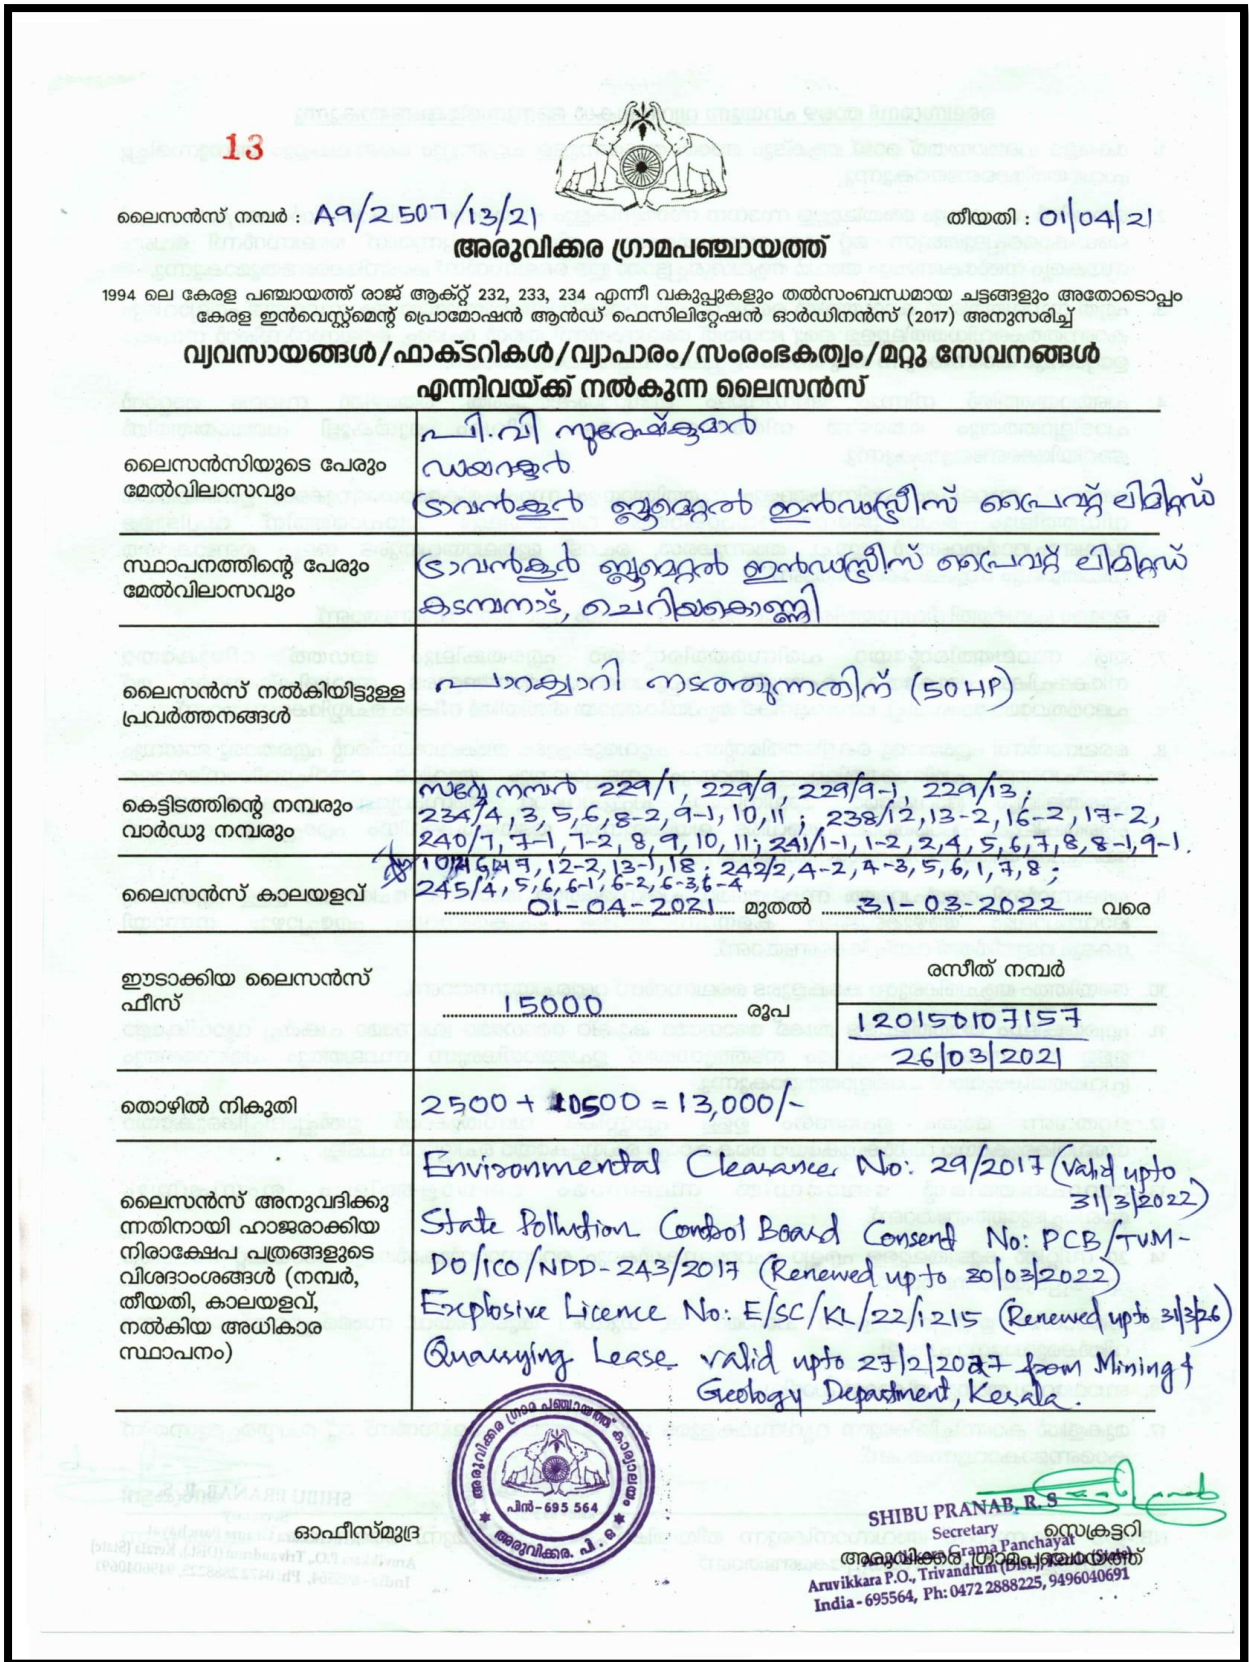 13
ലൈസൻസ് നമ്പർ : A9/2507/13/21
തീയതി : 01/04/21
അരുവിക്കര ഗ്രാമപഞ്ചായത്ത്
1994 ലെ കേരള പഞ്ചായത്ത് രാജ് ആക്റ്റ് 232, 233, 234 എന്നീ വകുപ്പുകളും തൽസംബന്ധമായ ചട്ടങ്ങളും അതോടൊപ്പം
കേരള ഇൻവെസ്റ്റ്മെന്റ് പ്രൊമോഷൻ ആൻഡ് ഫെസിലിറ്റേഷൻ ഓർഡിനൻസ് (2017) അനുസരിച്ച്
വ്യവസായങ്ങൾ/ഫാക്ടറികൾ/വ്യാപാരം/സംരംഭകത്വം/മറ്റു സേവനങ്ങൾ
എന്നിവയ്ക്ക് നൽകുന്ന ലൈസൻസ്
ലൈസൻസിയുടെ പേരും
മേൽവിലാസവും
പി.വി സുരേഷ്കുമാർ
ഡയറക്ടർ
ട്രാവൻകൂർ ബ്ലൂമെറ്റൽ ഇൻഡസ്ട്രീസ് പ്രൈവറ്റ് ലിമിറ്റഡ്
സ്ഥാപനത്തിന്റെ പേരും
മേൽവിലാസവും
ട്രാവൻകൂർ ബ്ലൂമെറ്റൽ ഇൻഡസ്ട്രീസ് പ്രൈവറ്റ് ലിമിറ്റഡ്
കടമ്പനാട്, ചെറിയകൊണ്ണി
ലൈസൻസ് നൽകിയിട്ടുള്ള
പ്രവർത്തനങ്ങൾ
പാറക്വാറി നടത്തുന്നതിന് (50HP)
കെട്ടിടത്തിന്റെ നമ്പരും
വാർഡു നമ്പരും
സർവ്വേ നമ്പർ 229/1, 229/9, 229/9-1, 229/13;
234/4, 3, 5, 6, 8-2, 9-1, 10, 11; 238/12, 13-2, 16-2, 17-2,
240/7, 7-1, 7-2, 8, 9, 10, 11; 241/1-1, 1-2, 2, 4, 5, 6, 7, 8, 8-1, 9-1,
12-2, 13-1, 18; 242/2, 4-2, 4-3, 5, 6, 1, 7, 8;
245/4, 5, 6, 6-1, 6-2, 6-3, 6-4
ലൈസൻസ് കാലയളവ്
01-04-2021 മുതൽ 31-03-2022 വരെ
ഈടാക്കിയ ലൈസൻസ്
ഫീസ്
15000 രൂപ
രസീത് നമ്പർ
120150107157
26/03/2021
തൊഴിൽ നികുതി
2500 + 10500 = 13,000/-
ലൈസൻസ് അനുവദിക്കു
ന്നതിനായി ഹാജരാക്കിയ
നിരാക്ഷേപ പത്രങ്ങളുടെ
വിശദാംശങ്ങൾ (നമ്പർ,
തീയതി, കാലയളവ്,
നൽകിയ അധികാര
സ്ഥാപനം)
Environmental Clearance No: 29/2017 (valid upto
31/3/2022)
State Pollution Control Board Consent No: PCB/TVM-
DO/ICO/NDD-243/2017 (Renewed up to 30/03/2022)
Explosive Licence No: E/SC/KL/22/1215 (Renewed upto 31/3/26)
Quarrying Lease valid upto 27/2/2027 from Mining &
Geology Department, Kerala.
അരുവിക്കര ഗ്രാമ പഞ്ചായത്ത് കാര്യാലയം
പിൻ-695 564
അരുവിക്കര. പി. ഒ
ഓഫീസ്മുദ്ര
SHIBU PRANAB, R. S
Secretary
സെക്രട്ടറി
Aruvikkara Grama Panchayat
അരുവിക്കര ഗ്രാമപഞ്ചായത്ത്
Aruvikkara P.O., Trivandrum (Dist.), Kerala (State)
India - 695564, Ph: 0472 2888225, 9496040691